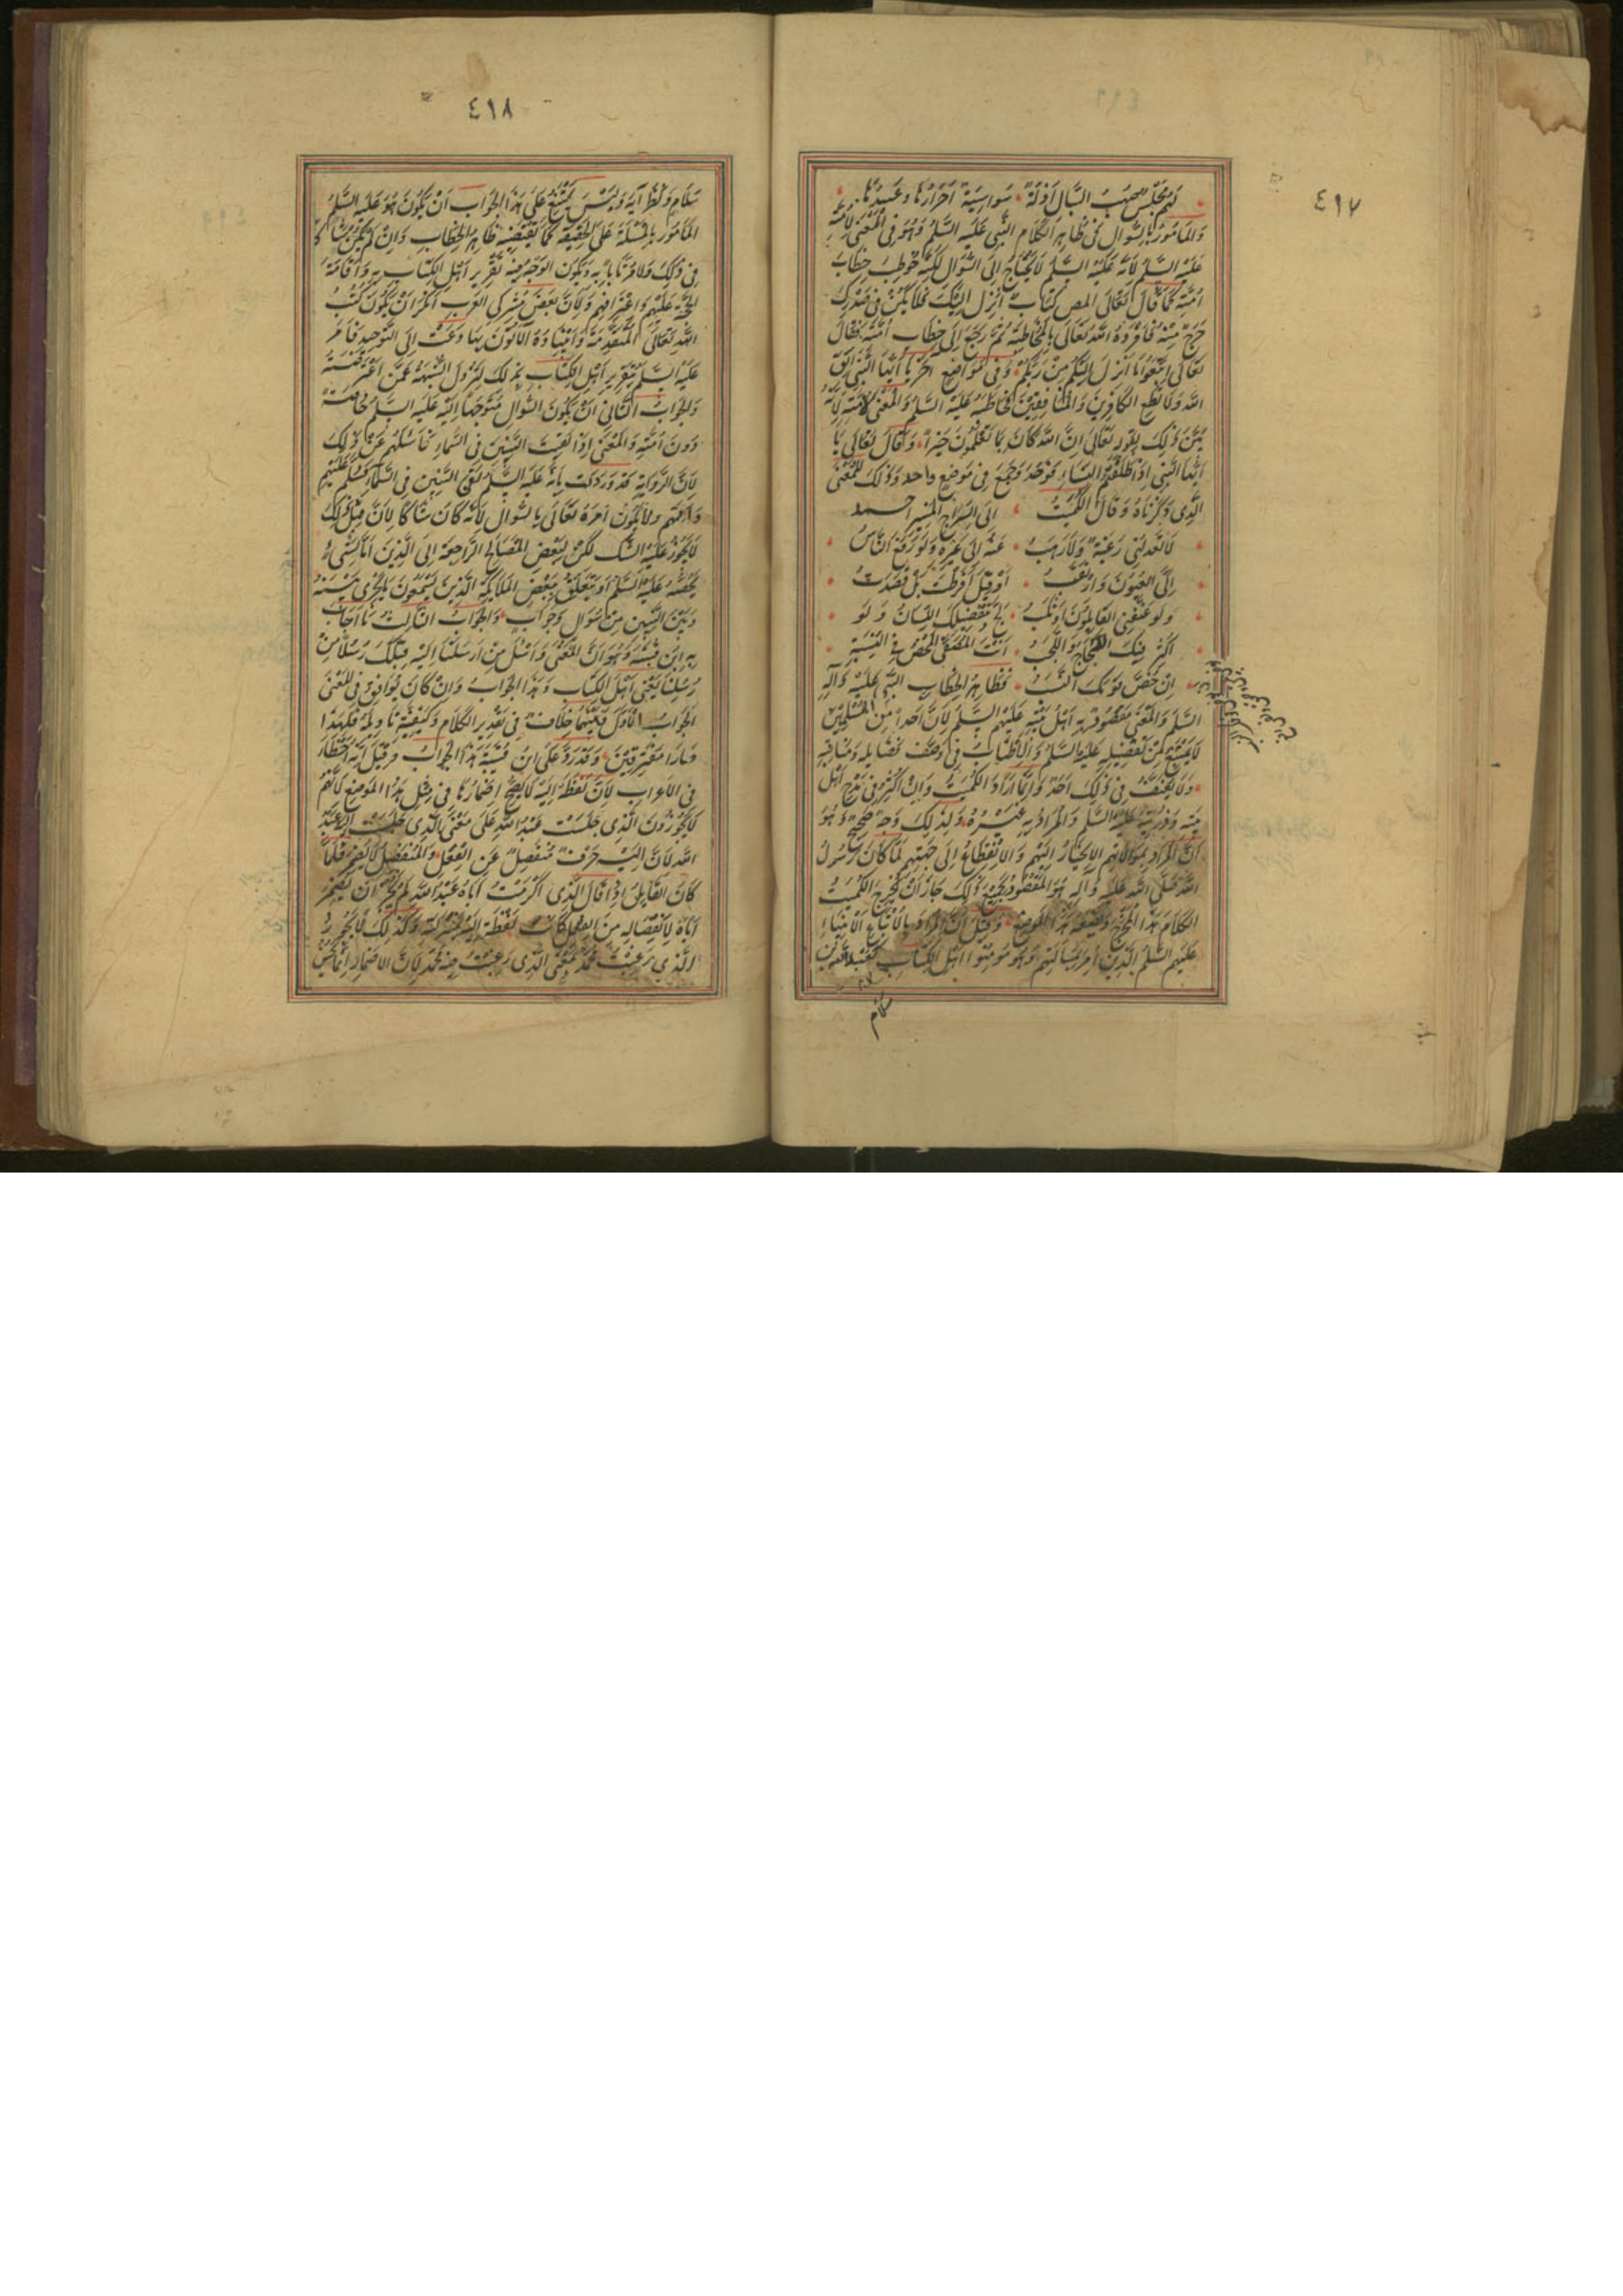 ٤١٧
لهم مجلس صهب السبال أذلة سواسية أحرارها وعبيدها
والمأمور بالسؤال في ظاهر الكلام النبي عليه السلم وهو في المعنى لأمته
عليه السلم لأنه عليه السلم لا يحتاج إلى السؤال لكنه خوطب خطاب
أمته كما قال تعالى المص كتاب أنزل إليك فلا يكن في صدرك
حرج منه فأفرده الله تعالى بالمخاطبة ثم رجع إلى خطاب أمته فقال
تعالى اتبعوا ما أنزل إليكم من ربكم وفي مواضع أخر يا أيها النبي اتق
الله ولا تطع الكافرين والمنافقين فخاطبه عليه السلم والمعنى لأمته لأنه
بين ذلك بقوله تعالى إن الله كان بما تعملون خبيرا وقال تعالى يا
أيها النبي إذا طلقتم النساء فوحد وجمع في موضع واحد وذلك للمعنى
الذي ذكرناه وقال الكميت إلى السراج المنير أحمد
لا تعدلني رغبة ولا رهب عنه إلى غيره ولو رفع الناس
إلي العيون وارتقبوا أو قيل أفرطت بل قصدت
ولو عنفني القائلون أو ثلبوا لج بتفضيلك اللسان ولو
أكثر فيك الضجاج واللجب أنت المصفى المحض في النسبة
إن نص قومك النسب فظاهر الخطاب للنبي عليه وآله
السلم والمعنى مقصود به أهل بيته عليهم السلم لأن أحدا من المسلمين
لا يمتنع من تفضيله عليه السلم والإطناب في وصف فضايله ومناقبه
ولا يعنف في ذلك أحد وإنما أراد الكميت وإن أكثر في مدح أهل
بيته وذريته عليه السلم والمراد به غيره ولذلك وجه صحيح وهو
أن المراد بموالاتهم الانحياز إليهم والانقطاع إلى حبهم لما كان رسول
الله صلى الله عليه وآله هو المقصود بجميع ذلك جاز أن يخرج الكميت
الكلام هذا المخرج ويضعه هذا الموضع وقيل أن المراد بالأتباع الأنبياء
عليهم السلم الذين أمر بمسألتهم وهو مؤمنوا أهل الكتاب كعبد الله بن
سلام
٤١٨
سلام ونظرآيه وليس يمتنع على هذا الجواب أن يكون هو عليه السلم
المأمور بالمسئلة على الحقيقة كما يقتضيه ظاهر الخطاب وإن لم يكن شاكا
في ذلك ولا مرتابا به ويكون الوجه فيه تقرير أهل الكتاب به وإقامة
الحجة عليهم واعترافهم ولأن بعض مشركي العرب أنكر أن يكون كتب
الله تعالى المتقدمة وأنبياؤه الآتون بها دعت إلى التوحيد فأمر
عليه السلم بتقرير أهل الكتاب بذلك لتزول الشبهة عمن اعترضته
والجواب الثاني أن يكون السؤال متوجها إليه عليه السلم خاصة
دون أمته والمعنى إذا لقيت النبيين في السماء فاسئلهم عن ذلك
لأن الرواية قد وردت بأنه عليه السلم لقي النبيين في السماء فسلم عليهم
وأمهم ولا يكون أمره تعالى بالسؤال لأنه كان شاكا لأن مثل ذلك
لا يجوز عليه الشك لكن لبعض المصالح الراجعة إلى الدين أما لشيء
يخصه عليه السلم أو يتعلق ببعض الملائكة الذين يستمعون ما يجري بينه
وبين النبيين من سؤال وجواب والجواب الثالث ما أجاب
به ابن قتيبة وهو أن المعنى واسئل من أرسلنا إليه قبلك رسلا من
رسلنا يعني أهل الكتاب وهذا الجواب وإن كان يوافق في المعنى
الجواب الأول فبينهما خلاف في تقدير الكلام وكيفية تأويله فلهذا
صارا مفترقين وقد رد على ابن قتيبة هذا الجواب وقيل إنه أخطأ
في الإعراب لأن لفظة إليه لا يصح إضمارها في مثل هذا الموضع لأنهم
لا يجوزون الذي جلست عبد الله على معنى الذي جلست إليه عبد
الله لأن إليه حرف منفصل عن الفعل والمنفصل لا يضمر فلما
كان القائل إذا قال الذي أكرمت أباه عبد الله لم يجز أن يضمر
أباه لانفصاله من الفعل كانت لفظة إليه بمنزلته وكذلك لا يجوز
الذي رغبت محمد بمعنى الذي رغبت فيه محمد لأن الإضمار إنما يحسن